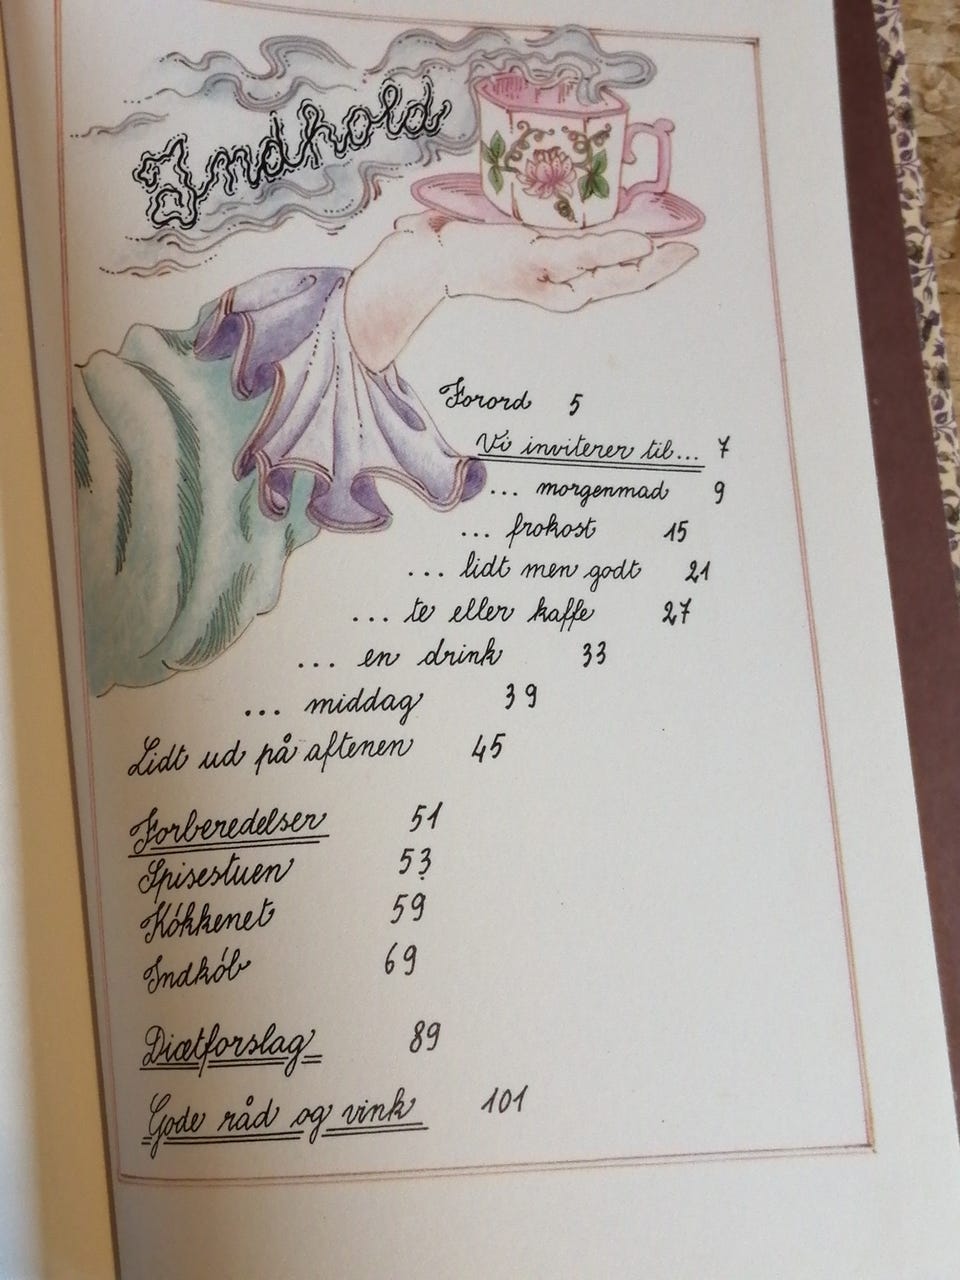 Indhold
Forord 5
Vi inviterer til... 7
... morgenmad 9
... frokost 15
... lidt men godt 21
... te eller kaffe 27
... en drink 33
... middag 39
Lidt ud på aftenen 45
Forberedelser 51
Spisestuen 53
Køkkenet 59
Indkøb 69
Diætforslag 89
Gode råd og vink 101